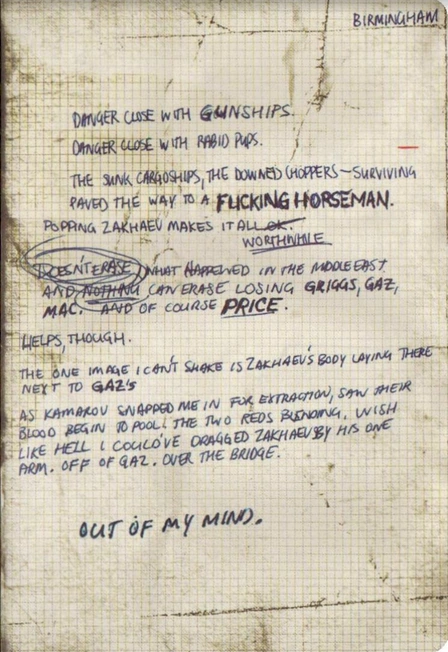 BIRMINGHAM
DANGER CLOSE WITH GUNSHIPS.
DANGER CLOSE WITH RABID PUPS.
THE SUNK CARGOSHIPS, THE DOWNED CHOPPERS - SURVIVING
PAVED THE WAY TO A FUCKING HORSEMAN.
POPPING ZAKHAEV MAKES IT ALL OK.
WORTHWHILE
DOESN'T ERASE WHAT HAPPENED IN THE MIDDLE EAST
AND NOTHING CAN ERASE LOSING GRIGGS, GAZ,
MAC. AND OF COURSE PRICE.
HELPS, THOUGH.
THE ONE IMAGE I CAN'T SHAKE IS ZAKHAEV'S BODY LAYING THERE
NEXT TO GAZ'S
AS KAMAROV SNAPPED ME IN FOR EXTRACTION, SAW THEIR
BLOOD BEGIN TO POOL. THE TWO REDS BLENDING. WISH
LIKE HELL I COULD'VE DRAGGED ZAKHAEV BY HIS ONE
ARM. OFF OF GAZ. OVER THE BRIDGE.
OUT OF MY MIND.